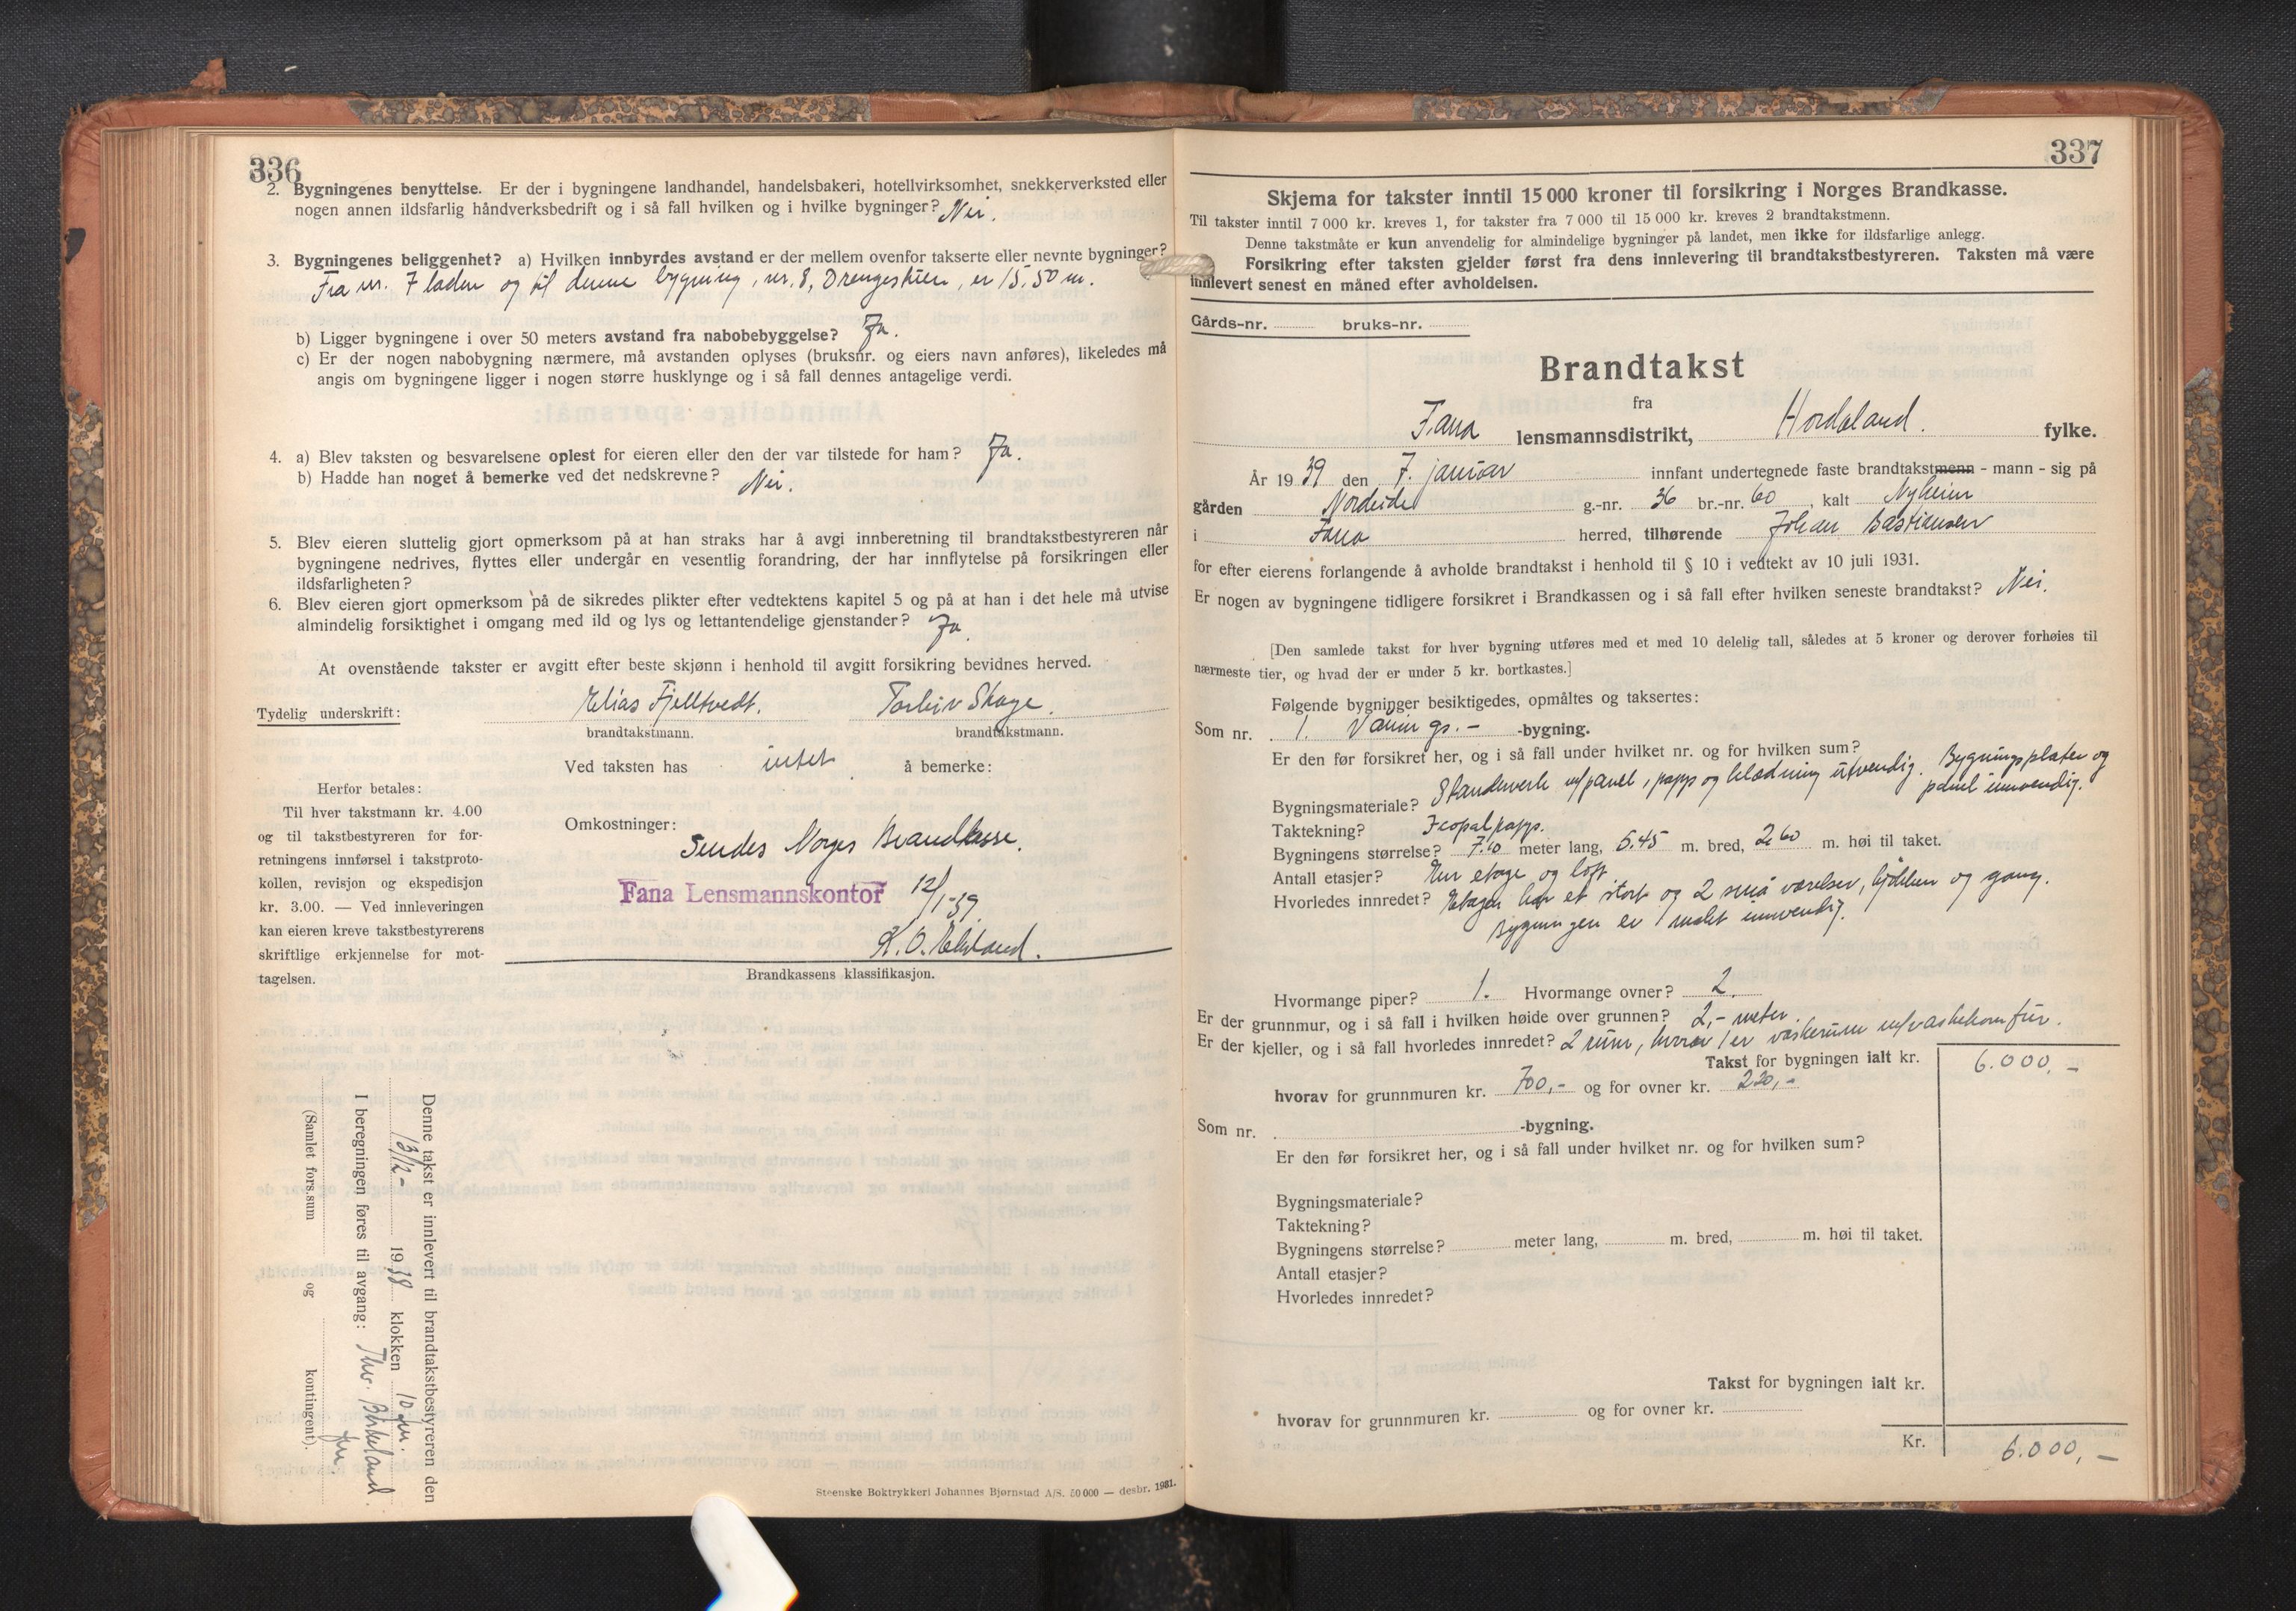 336
2. Bygningenes benyttelse. Er der i bygningene landhandel, handelsbakeri, hotellvirksomhet, snekkerverksted eller
nogen annen ildsfarlig håndverksbedrift og i så fall hvilken og i hvilke bygninger? Nei.
3. Bygningenes beliggenhet? a) Hvilken innbyrdes avstand er der mellem ovenfor takserte eller nevnte bygninger?
Fra nr. 7 laden og til denne bygning, nr. 8, Drengestuen, er 15,50 m.
b) Ligger bygningene i over 50 meters avstand fra nabobebyggelse? Ja.
c) Er der nogen nabobygning nærmere, må avstanden oplyses (bruksnr. og eiers navn anføres), likeledes må
angis om bygningene ligger i nogen større husklynge og i så fall dennes antagelige verdi.
4. a) Blev taksten og besvarelsene oplest for eieren eller den der var tilstede for ham? Ja.
b) Hadde han noget å bemerke ved det nedskrevne? Nei.
5. Blev eieren sluttelig gjort opmerksom på at han straks har å avgi innberetning til brandtakstbestyreren når
bygningene nedrives, flyttes eller undergår en vesentlig forandring, der har innflytelse på forsikringen eller
ildsfarligheten?
6. Blev eieren gjort opmerksom på de sikredes plikter efter vedtektens kapitel 5 og på at han i det hele må utvise
almindelig forsiktighet i omgang med ild og lys og lettantendelige gjenstander? Ja
At ovenstående takster er avgitt efter beste skjønn i henhold til avgitt forsikring bevidnes herved.
Tydelig underskrift: Elias Fjelltvedt. Torleiv Skage.
brandtakstmann. brandtakstmann.
Ved taksten has intet å bemerke:
Herfor betales:
Til hver takstmann kr. 4.00
og til takstbestyreren for for-
retningens innførsel i takstproto-
kollen, revisjon og ekspedisjon
kr. 3.00. — Ved innleveringen
kan eieren kreve takstbestyrerens
skriftlige erkjennelse for mot-
tagelsen.
Omkostninger:
Sendes Norges Brandkasse.
Fana Lensmannskontor 12/1-39.
Brandkassens klassifikasjon.
Denne takst er innlevert til brandtakstbestyreren den
13/12- 1938 klokken 10 fm.
I beregningen føres til avgang: Thv. Birkeland.
fm
(Samlet fors.sum og kontingent).
Steenske Boktrykkeri Johannes Bjørnstad A/S. 50 000 — desbr. 1931.
337
Skjema for takster inntil 15 000 kroner til forsikring i Norges Brandkasse.
Til takster inntil 7 000 kr. kreves 1, for takster fra 7 000 til 15 000 kr. kreves 2 brandtakstmenn.
Denne takstmåte er kun anvendelig for almindelige bygninger på landet, men ikke for ildsfarlige anlegg.
Forsikring efter taksten gjelder først fra dens innlevering til brandtakstbestyreren. Taksten må være
innlevert senest en måned efter avholdelsen.
Gårds-nr. bruks-nr.
Brandtakst
fra
Fana lensmannsdistrikt, Hordaland. fylke.
År 1939 den 7. januar innfant undertegnede faste brandtakstmenn - mann - sig på
gården Nordeide g.-nr. 36 br.-nr. 60, kalt Nyheim
i Fana herred, tilhørende Johan Bastiansen
for efter eierens forlangende å avholde brandtakst i henhold til § 10 i vedtekt av 10 juli 1931.
Er nogen av bygningene tidligere forsikret i Brandkassen og i så fall efter hvilken seneste brandtakst? Nei.
[Den samlede takst for hver bygning utføres med et med 10 delelig tall, således at 5 kroner og derover forhøies til
nærmeste tier, og hvad der er under 5 kr. bortkastes.]
Følgende bygninger besiktigedes, opmåltes og taksertes:
Som nr. 1. Vånings.- -bygning.
Er den før forsikret her, og i så fall under hvilket nr. og for hvilken sum?
Bygningsmateriale? Standerverk m/panel, papp og klædning utvendig. Bygningsplater og
panel innvendig.
Taktekning? Icopalpapp.
Bygningens størrelse? 7.10 meter lang, 5.45 m. bred, 2.60 m. høi til taket.
Antall etasjer? En etage og loft
Hvorledes innredet? Etagen har et stort og 2 små værelser, kjøkken og gang.
Bygningen er malt innvendig.
Hvormange piper? 1. Hvormange ovner? 2.
Er der grunnmur, og i så fall i hvilken høide over grunnen? 2,- meter.
Er der kjeller, og i så fall hvorledes innredet? 2 rum, hvorav 1 er vaskerum m/vaskekomfur.
Takst for bygningen ialt kr. 6.000,-
hvorav for grunnmuren kr. 700,- og for ovner kr. 220,-
Som nr. -bygning.
Er den før forsikret her, og i så fall under hvilket nr. og for hvilken sum?
Bygningsmateriale?
Taktekning?
Bygningens størrelse? meter lang, m. bred, m. høi til taket.
Antall etasjer?
Hvorledes innredet?
Takst for bygningen ialt kr.
hvorav for grunnmuren kr. og for ovner kr.
Kr. 6.000,-